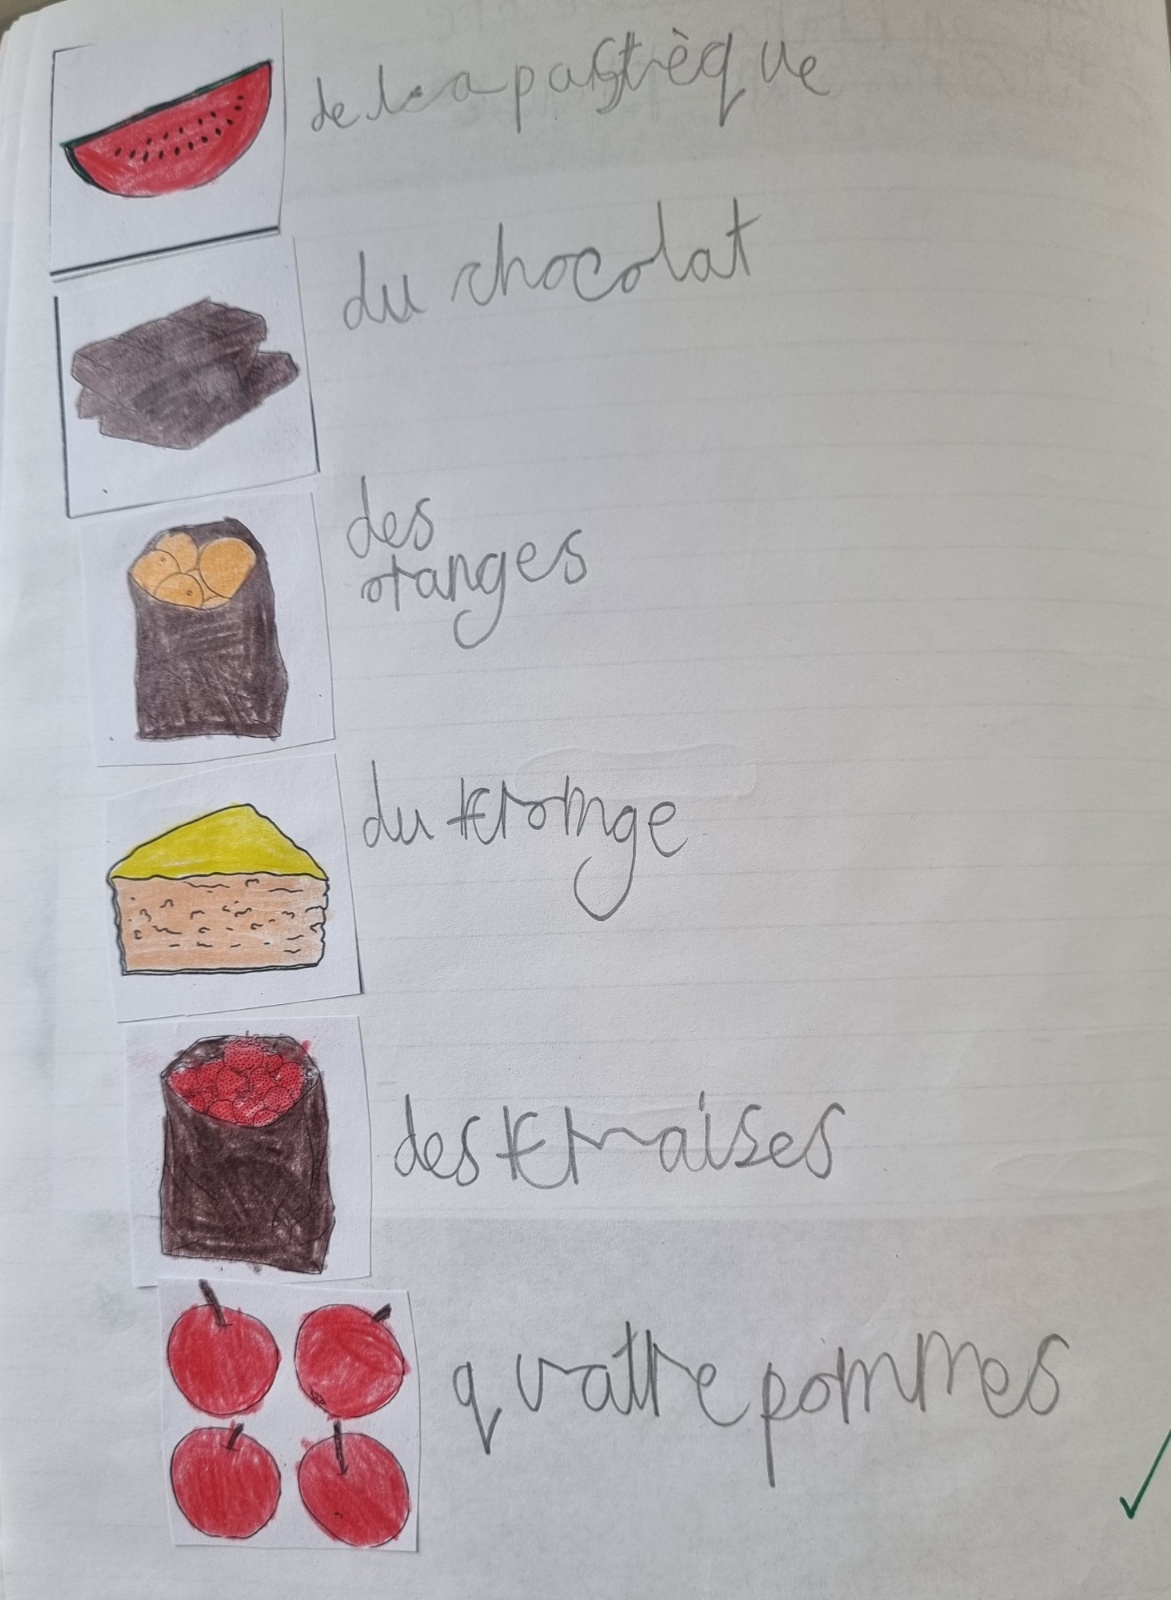 de la pastèque
du chocolat
des
oranges
du fromge
des fraises
quatre pommes